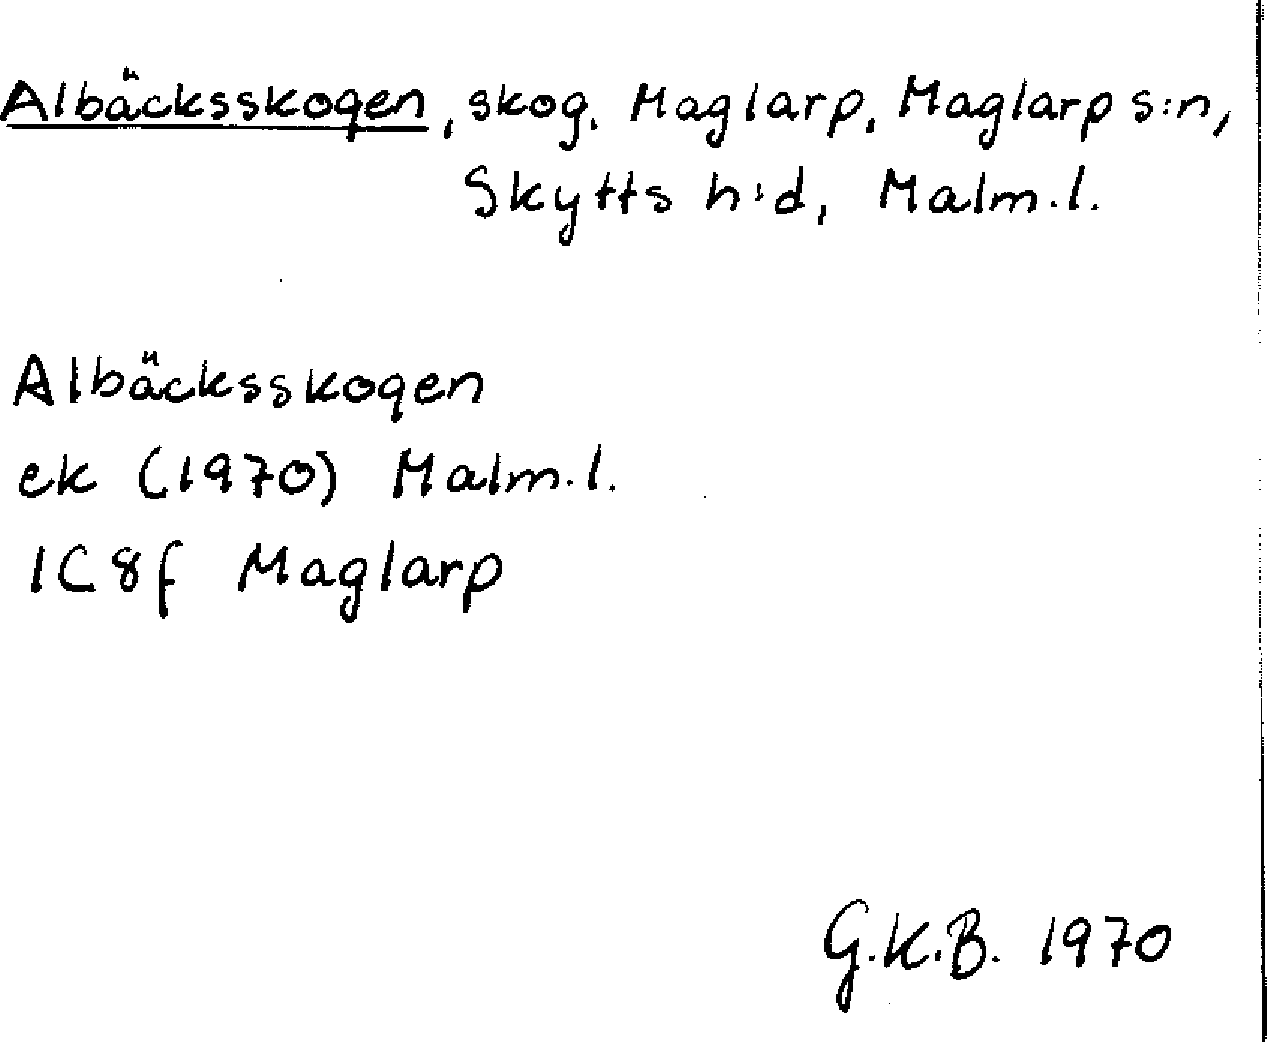 Albäcksskogen, skog, Maglarp, Maglarp s:n,
Skytts h:d, Malm.l.
Albäcksskogen
ek (1970) Malm.l.
1C8f Maglarp
G.K.B. 1970